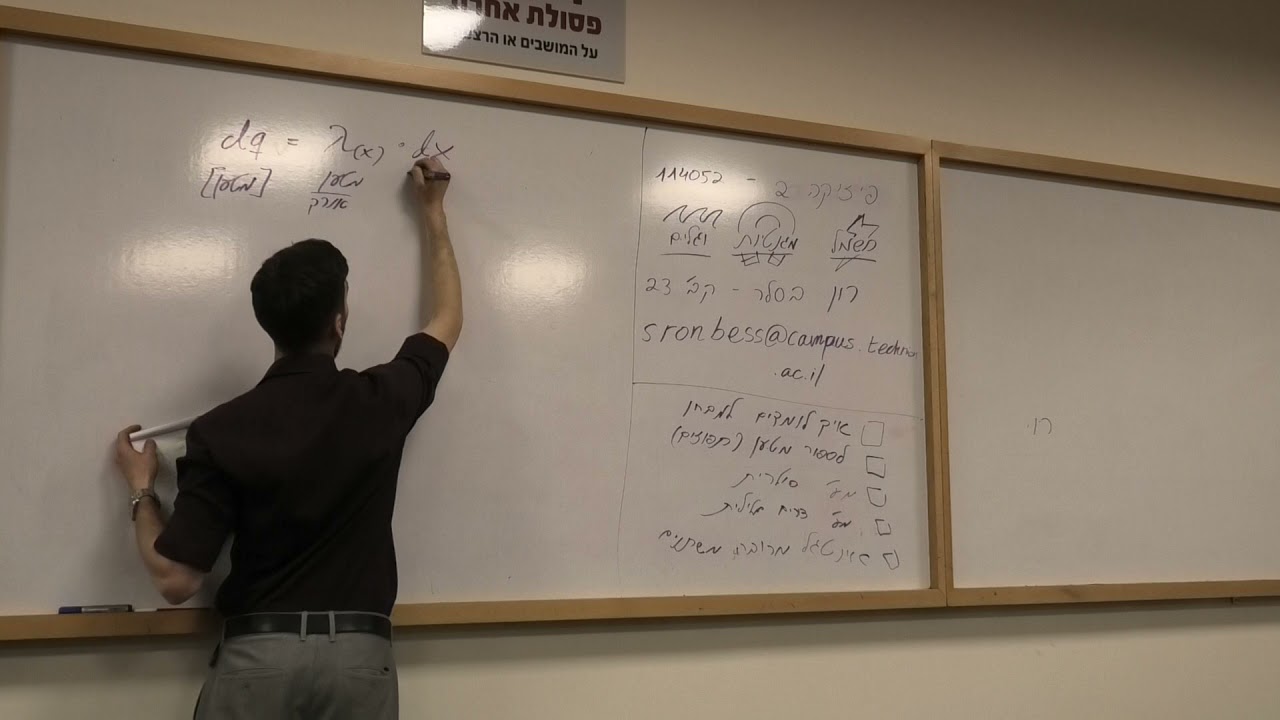 פסולת אחרון
על המושבים או הרצפ
dq = λ(x) · dx
[מטען] מטען
אורך
פיזיקה 2 - 114052
חשמל מגנטיות וגלים
רון בסלר - קב' 23
sronbess@campus.technion
.ac.il
איך לומדים למבחן
לספור מטען (תפוזים)
מע' סולרית
מע' צירים גלילית
אינטגל מרובה משתנים
רו